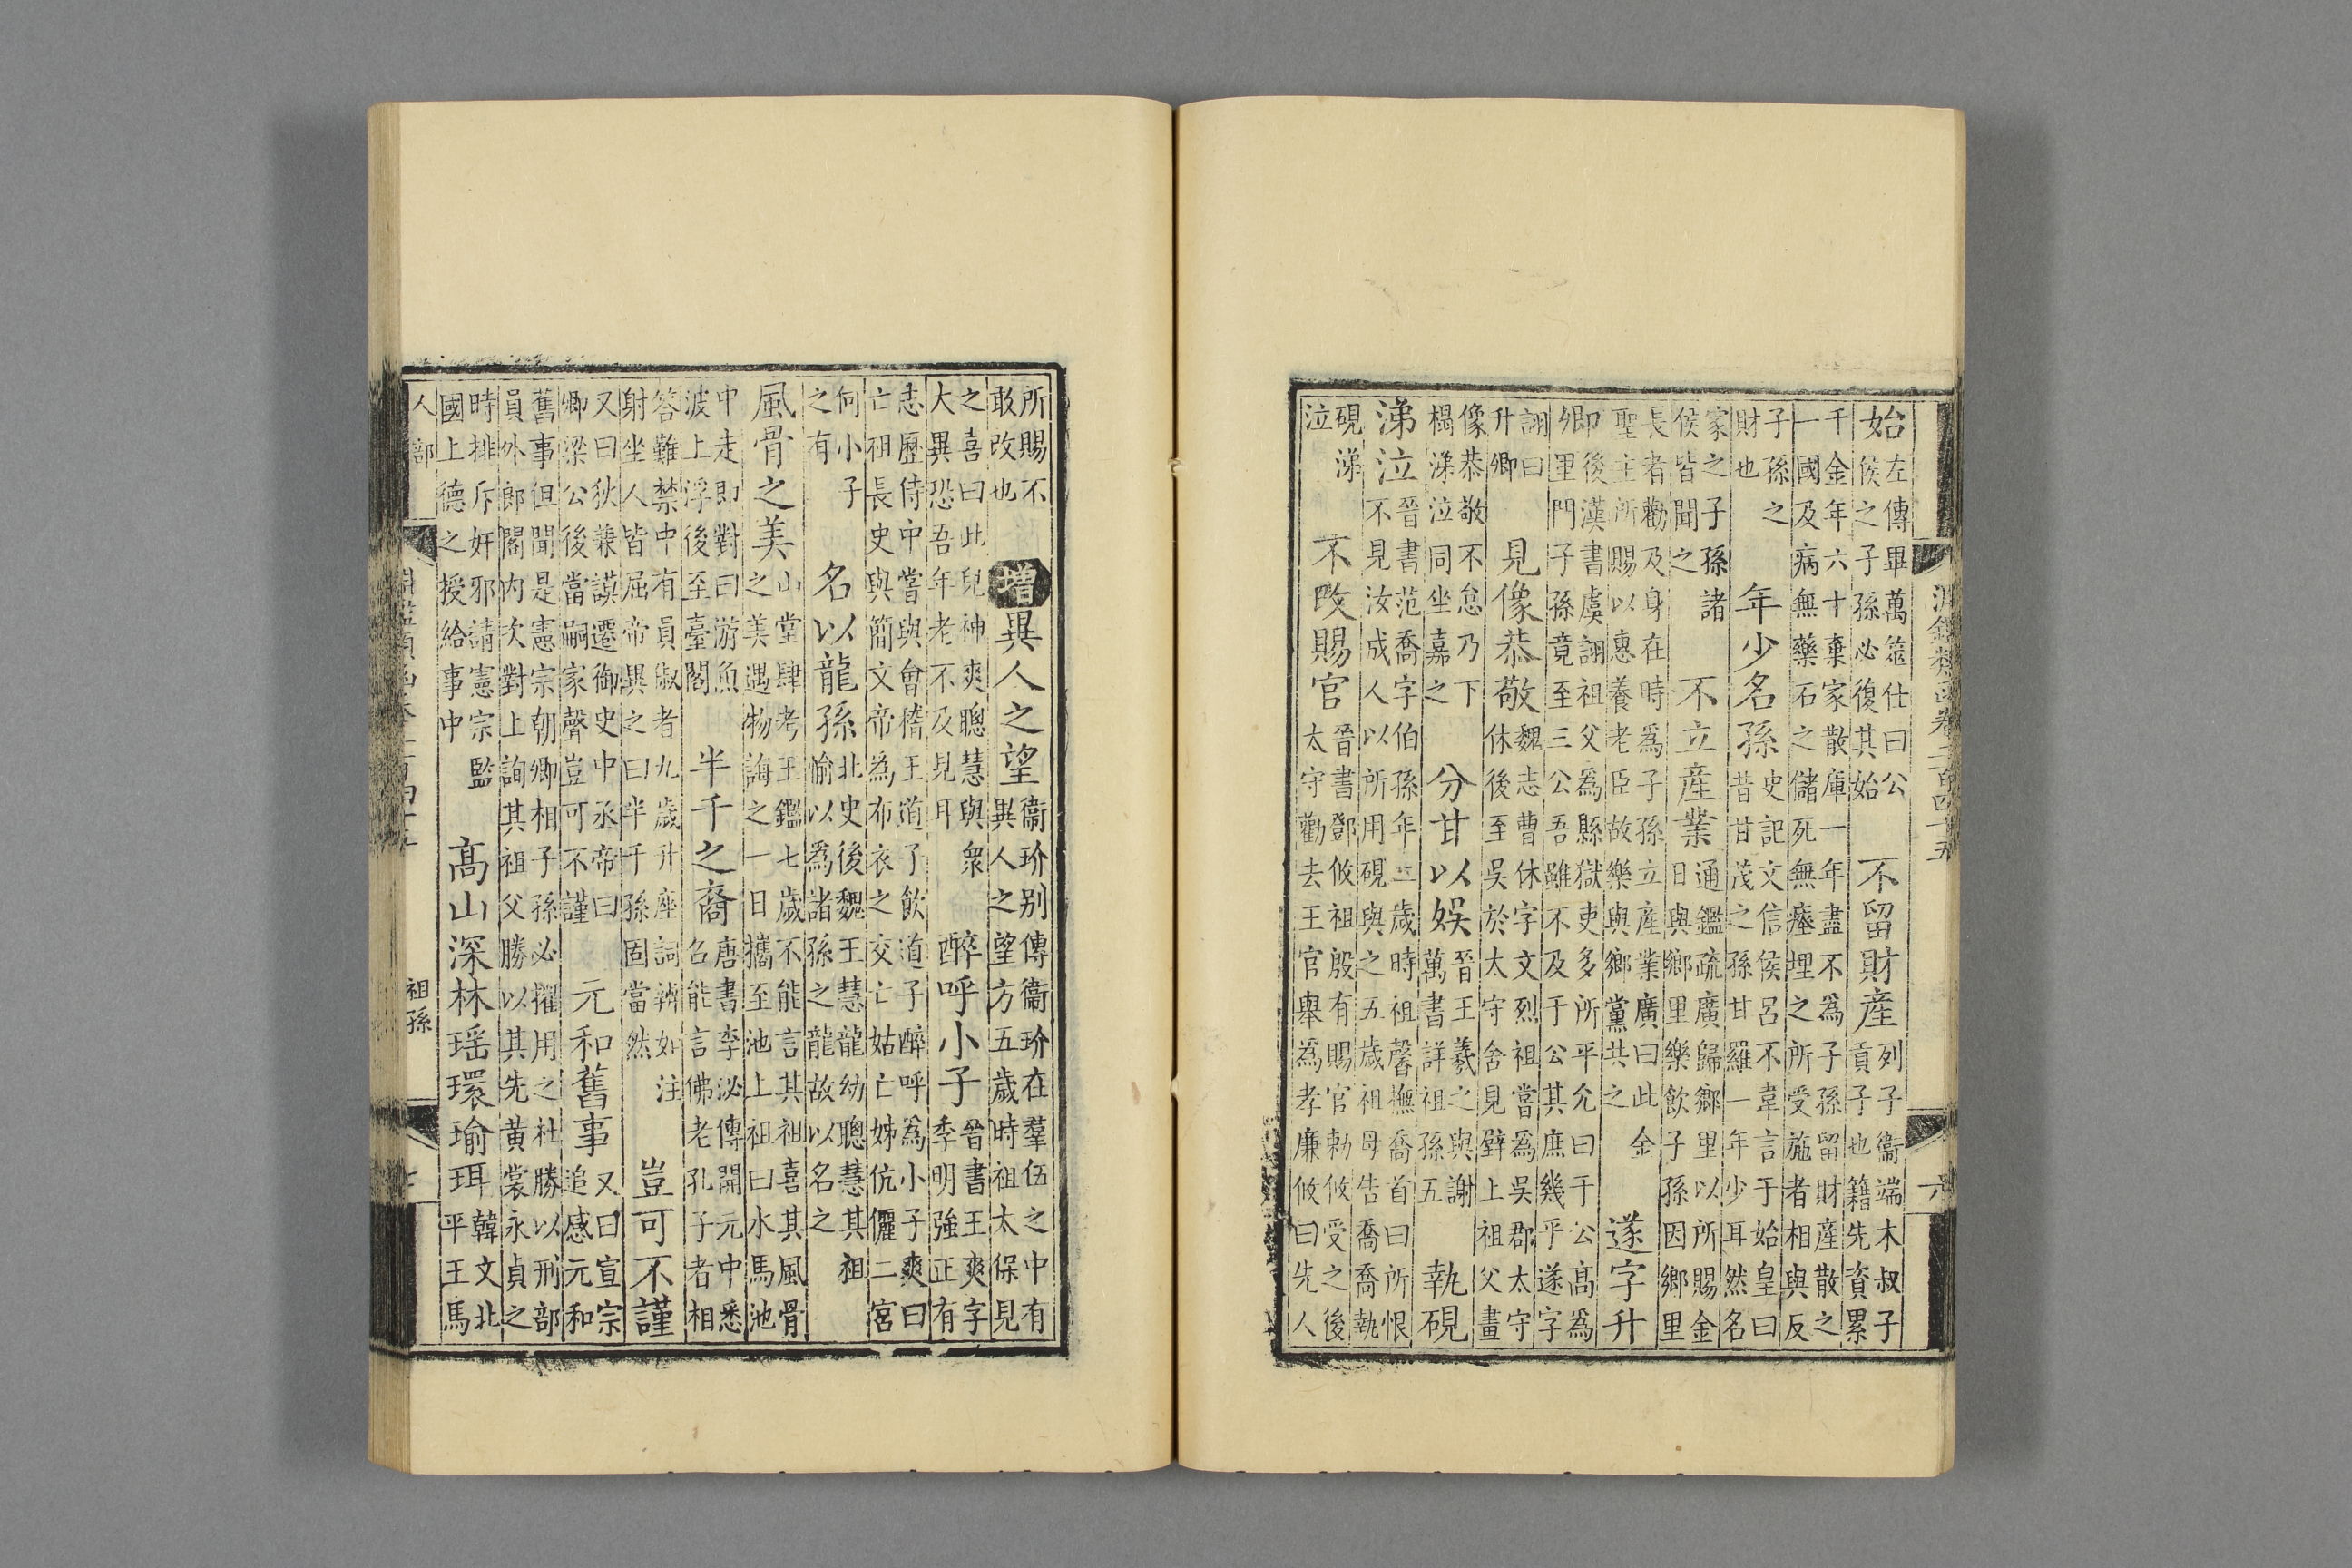 淵鑑類函卷二百四十五 六
始 左傳畢萬筮仕曰公侯之子孫必復其始 不留財産 列子衞端木叔子貢子也籍先資累
千金年六十棄家散庫一年盡不爲子孫留財産散之
一國及病無藥石之儲死無瘞埋之所受施者相與反
子孫之財也 年少名孫 史記文信侯呂不韋言于始皇曰昔甘茂之孫甘羅一年少耳然名
家之子孫諸侯皆聞之 不立産業 通鑑疏廣歸鄉里以所賜金日與鄉里樂飲子孫因鄉里
長者勸及身在時爲子孫立産業廣曰此金聖主所賜以惠養老臣故樂與鄉黨共之 遂字升
卿 後漢書虞詡祖父爲縣獄吏多所平允曰于公高爲里門子孫竟至三公吾雖不及于公其庶幾乎遂字
詡曰升卿 見像恭敬 魏志曹休字文烈祖嘗爲吳郡太守休後至吳於太守舍見壁上祖父畫
像恭敬不怠乃下榻涕泣同坐嘉之 分甘以娛 晉王羲之與謝萬書詳祖孫五 執硯
涕泣 晉書范喬字伯孫年二歲時祖馨撫喬首曰所恨不見汝成人以所用硯與之五歲祖母告喬喬執
硯涕泣 不改賜官 晉書鄧攸祖殷有賜官勅攸受之後太守勸去王官舉爲孝廉攸曰先人
所賜不敢改也 增異人之望 衞玠别傳衞玠在羣伍之中有異人之望方五歲時祖太保見
之喜曰此兒神爽聰慧與衆大異恐吾年老不及見耳 醉呼小子 晉書王爽字季明強正有
志歷侍中嘗與會稽王道子飲道子醉呼爲小子爽曰
亡祖長史與簡文帝爲布衣之交亡姑亡姊伉儷二宮
何小子之有 名以龍孫 北史後魏王慧龍幼聰慧其祖愉以爲諸孫之龍故以名之
風骨之美 山堂肆考王鑑七歲不能言其祖喜其風骨之美遇物誨之一日攜至池上祖曰水馬池
中走即對曰游魚波上浮後至臺閣 半千之裔 唐書李泌傳開元中悉召能言佛老孔子者相
答難禁中有員俶者九歲升座詞辨如注射坐人皆屈帝異之曰半千孫固當然 豈可不謹
又曰狄兼謨遷御史中丞帝曰卿梁公後當嗣家聲豈可不謹 元和舊事 又曰宣宗追感元和
舊事但聞是憲宗朝卿相子孫必擢用之杜勝以刑部
員外郎閣内次對上詢其祖父勝以其先黄裳永貞之
時排斥奸邪請憲宗監國上德之授給事中 高山深林瑶環瑜珥 韓文北平王馬
人部 祖孫